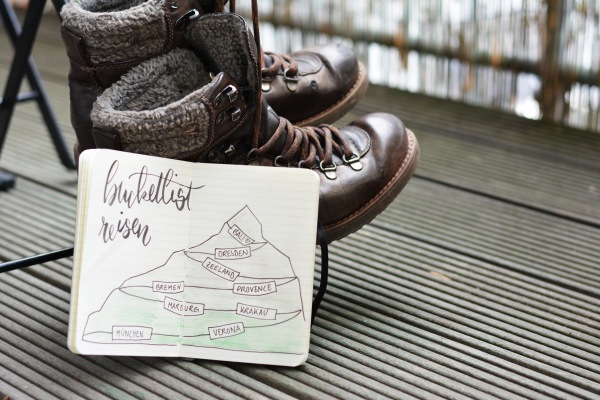 bucketlist
reisen
BALI
DRESDEN
ZEELAND
BREMEN
PROVENCE
MARBURG
KRAKAU
MÜNCHEN
VERONA